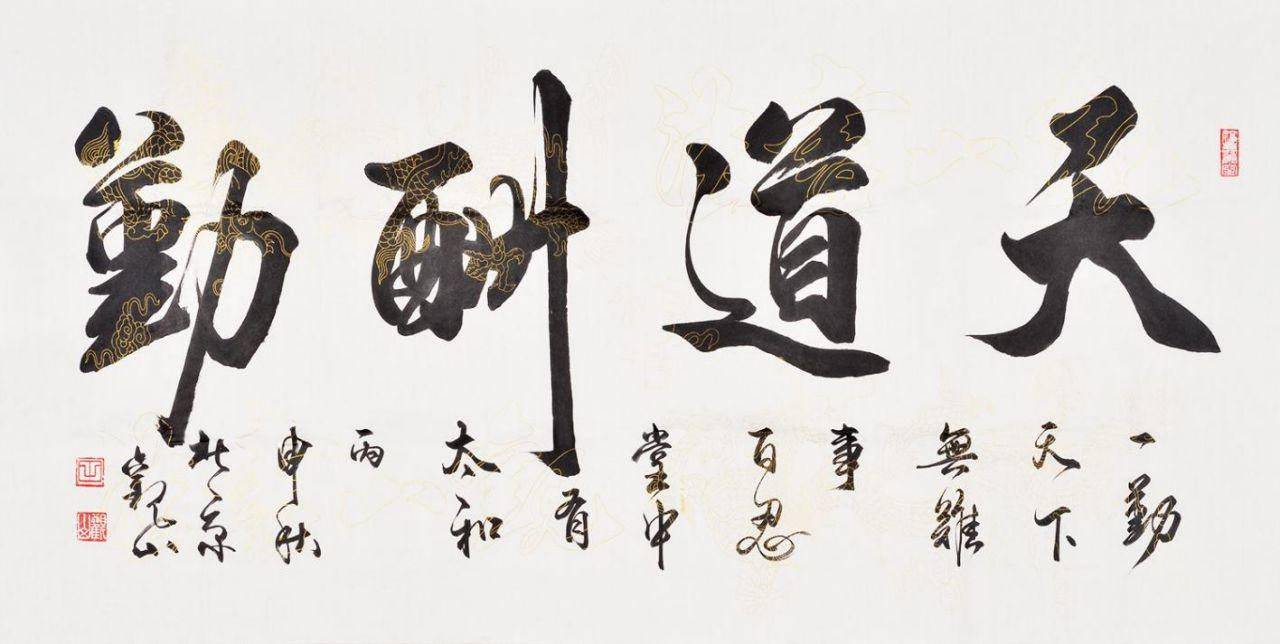 天道酬勤
一勤
天下
無難
事
百忍
堂中
有
太和
丙
申秋
北京
觀山